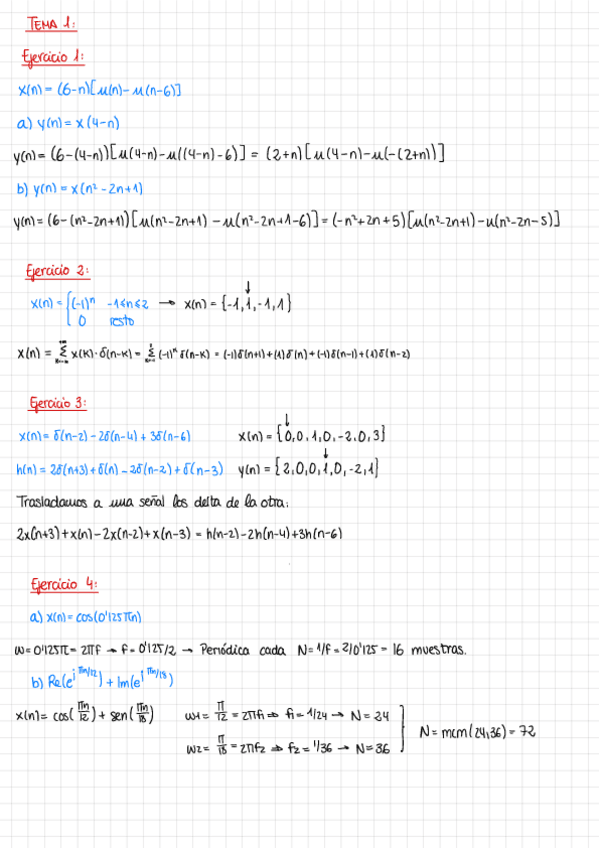 TEMA 1:
Ejercicio 1:
x(n) = (6-n)[u(n)-u(n-6)]
a) y(n) = x(4-n)
y(n) = (6-(4-n))[u(4-n)-u((4-n)-6)] = (2+n)[u(4-n)-u(-(2+n))]
b) y(n) = x(n²-2n+1)
y(n) = (6-(n²-2n+1))[u(n²-2n+1) - u(n²-2n+1-6)] = (-n²+2n+5)[u(n²-2n+1)-u(n²-2n-5)]
Ejercicio 2:
x(n) = { (-1)ⁿ -1≤n≤2 → x(n) = {-1,1,-1,1}
0 resto
x(n) = Σ x(k)·δ(n-k) = Σ (-1)ᵏ δ(n-k) = (-1)δ(n+1)+(1)δ(n)+(-1)δ(n-1)+(1)δ(n-2)
Ejercicio 3:
x(n) = δ(n-2) - 2δ(n-4) + 3δ(n-6) x(n) = {0,0,1,0,-2,0,3}
h(n) = 2δ(n+3)+δ(n)-2δ(n-2)+δ(n-3) y(n) = {2,0,0,1,0,-2,1}
Trasladamos a una señal los delta de la otra:
2x(n+3)+x(n)-2x(n-2)+x(n-3) = h(n-2)-2h(n-4)+3h(n-6)
Ejercicio 4:
a) x(n) = cos(0'125πn)
w = 0'125π = 2πf → f = 0'125/2 → Periódica cada N = 1/f = 2/0'125 = 16 muestras.
b) Re(e^{jπn/12}) + Im(e^{jπn/18})
x(n) = cos(πn/12) + sen(πn/18) w1 = π/12 = 2πf1 ⇒ f1 = 1/24 → N = 24
w2 = π/18 = 2πf2 ⇒ f2 = 1/36 → N = 36
N = mcm(24,36) = 72